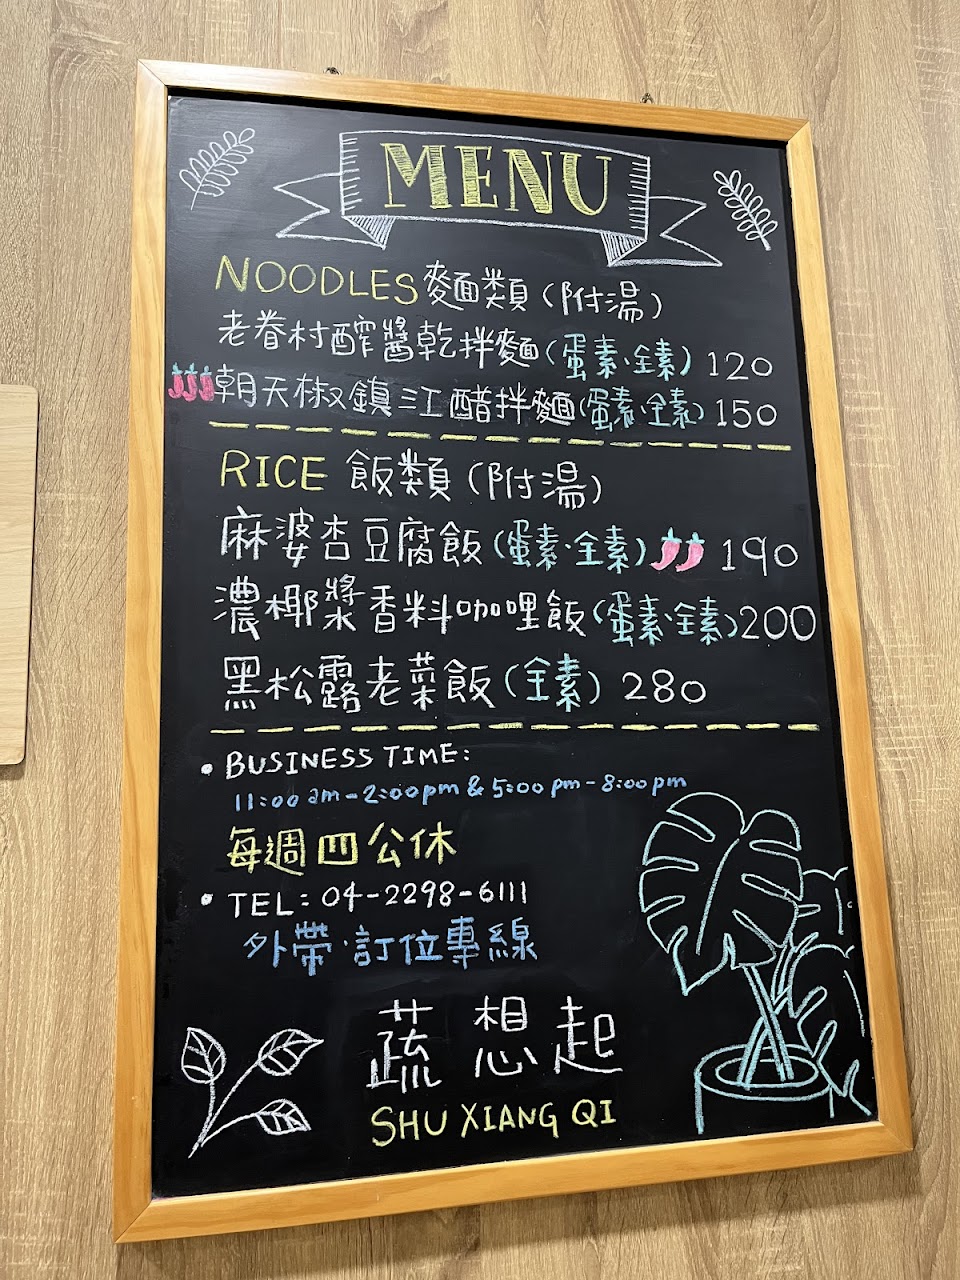 MENU
NOODLES 麵類（附湯）
老眷村酢醬乾拌麵（蛋素·全素）120
朝天椒鎮江醋拌麵（蛋素·全素）150
RICE 飯類（附湯）
麻婆杏豆腐飯（蛋素·全素）190
濃椰漿香料咖哩飯（蛋素·全素）200
黑松露老菜飯（全素）280
• BUSINESS TIME:
11:00 am-2:00pm & 5:00 pm-8:00pm
每週四公休
• TEL: 04-2298-6111
外帶·訂位專線
蔬想起
SHU XIANG QI